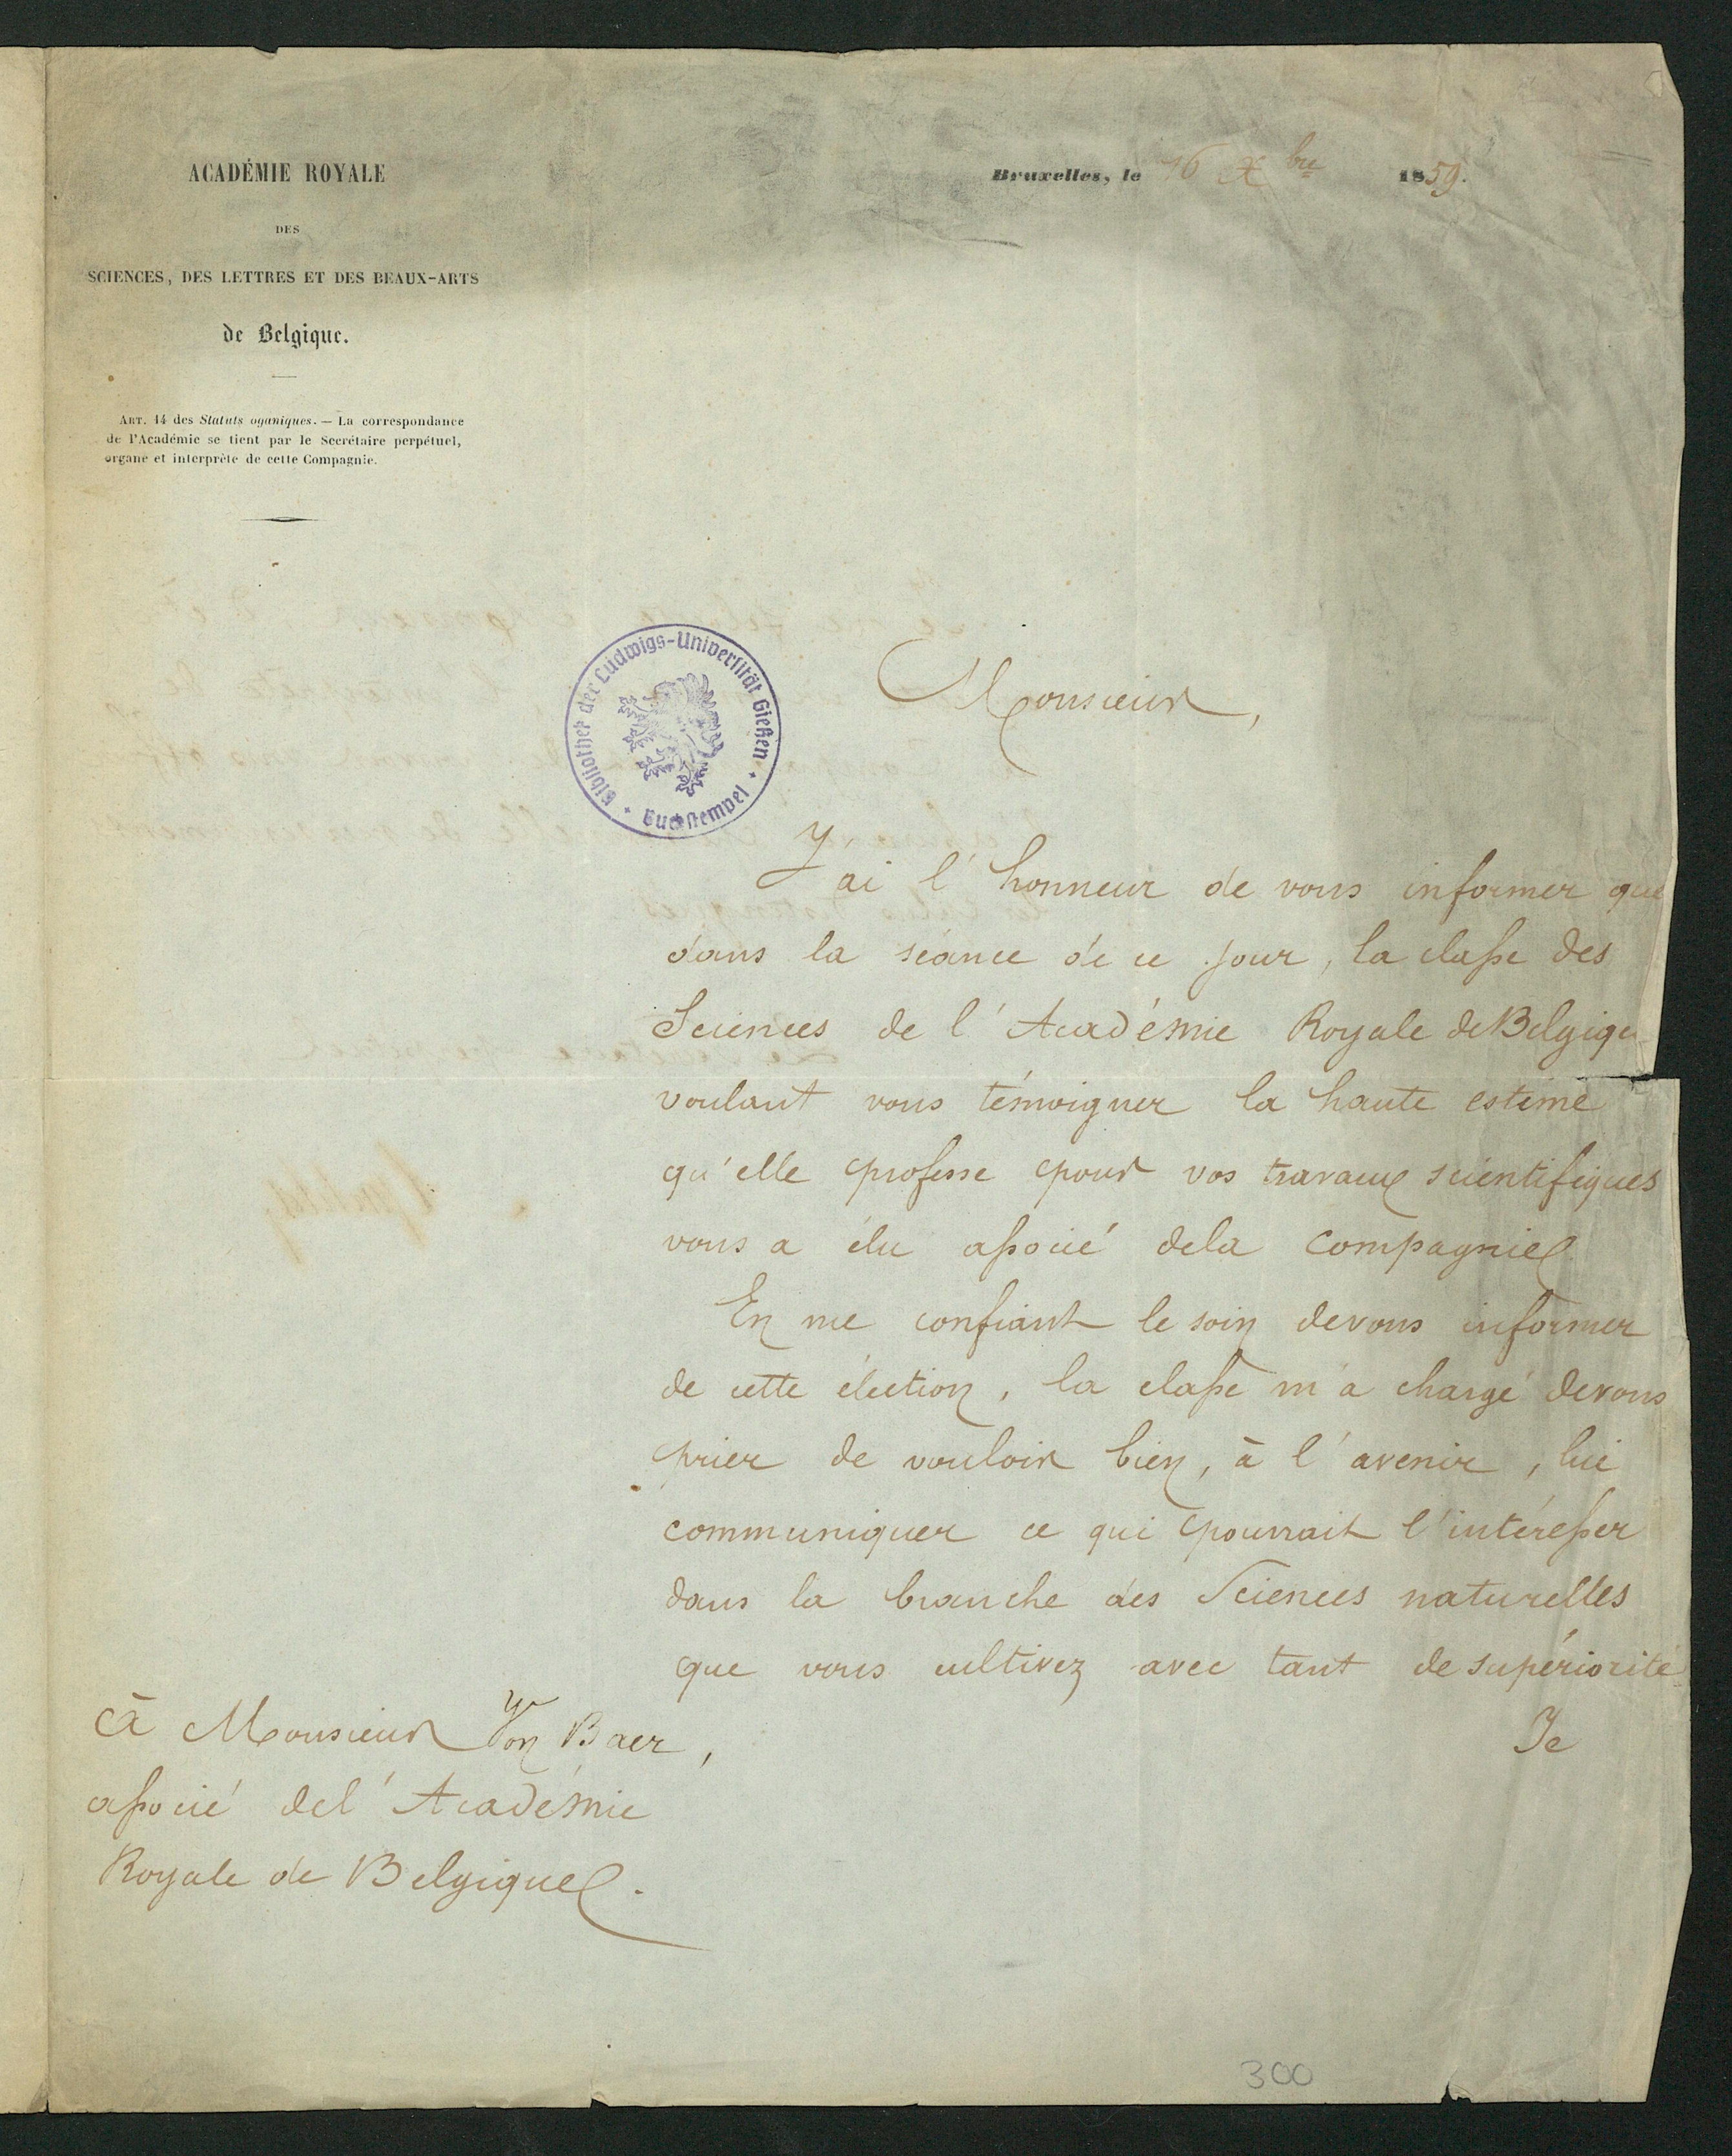 ACADÉMIE ROYALE
DES
SCIENCES, DES LETTRES ET DES BEAUX-ARTS
de Belgique.
ART. 14 des Statuts oganiques. — La correspondance
de l'Académie se tient par le Secrétaire perpétuel,
organe et interprète de cette Compagnie.
Bruxelles, le 16 Xbre 1859.
Bibliothek der Ludwigs-Universität Gießen
Buchstempel
Monsieur,
J'ai l'honneur de vous informer que
dans la séance de ce jour, la classe des
Sciences de l'Académie Royale de Belgique
voulant vous témoigner la haute estime
qu'elle professe pour vos travaux scientifiques
vous a élu associé de la Compagnie
En me confiant le soin de vous informer
de cette élection, la classe m'a chargé de vous
prier de vouloir bien, à l'avenir, lui
communiquer ce qui pourrait l'intéresser
dans la branche des Sciences naturelles
que vous cultivez avec tant de supériorité
Je
à Monsieur Von Baer,
associé de l'Académie
Royale de Belgique.
300